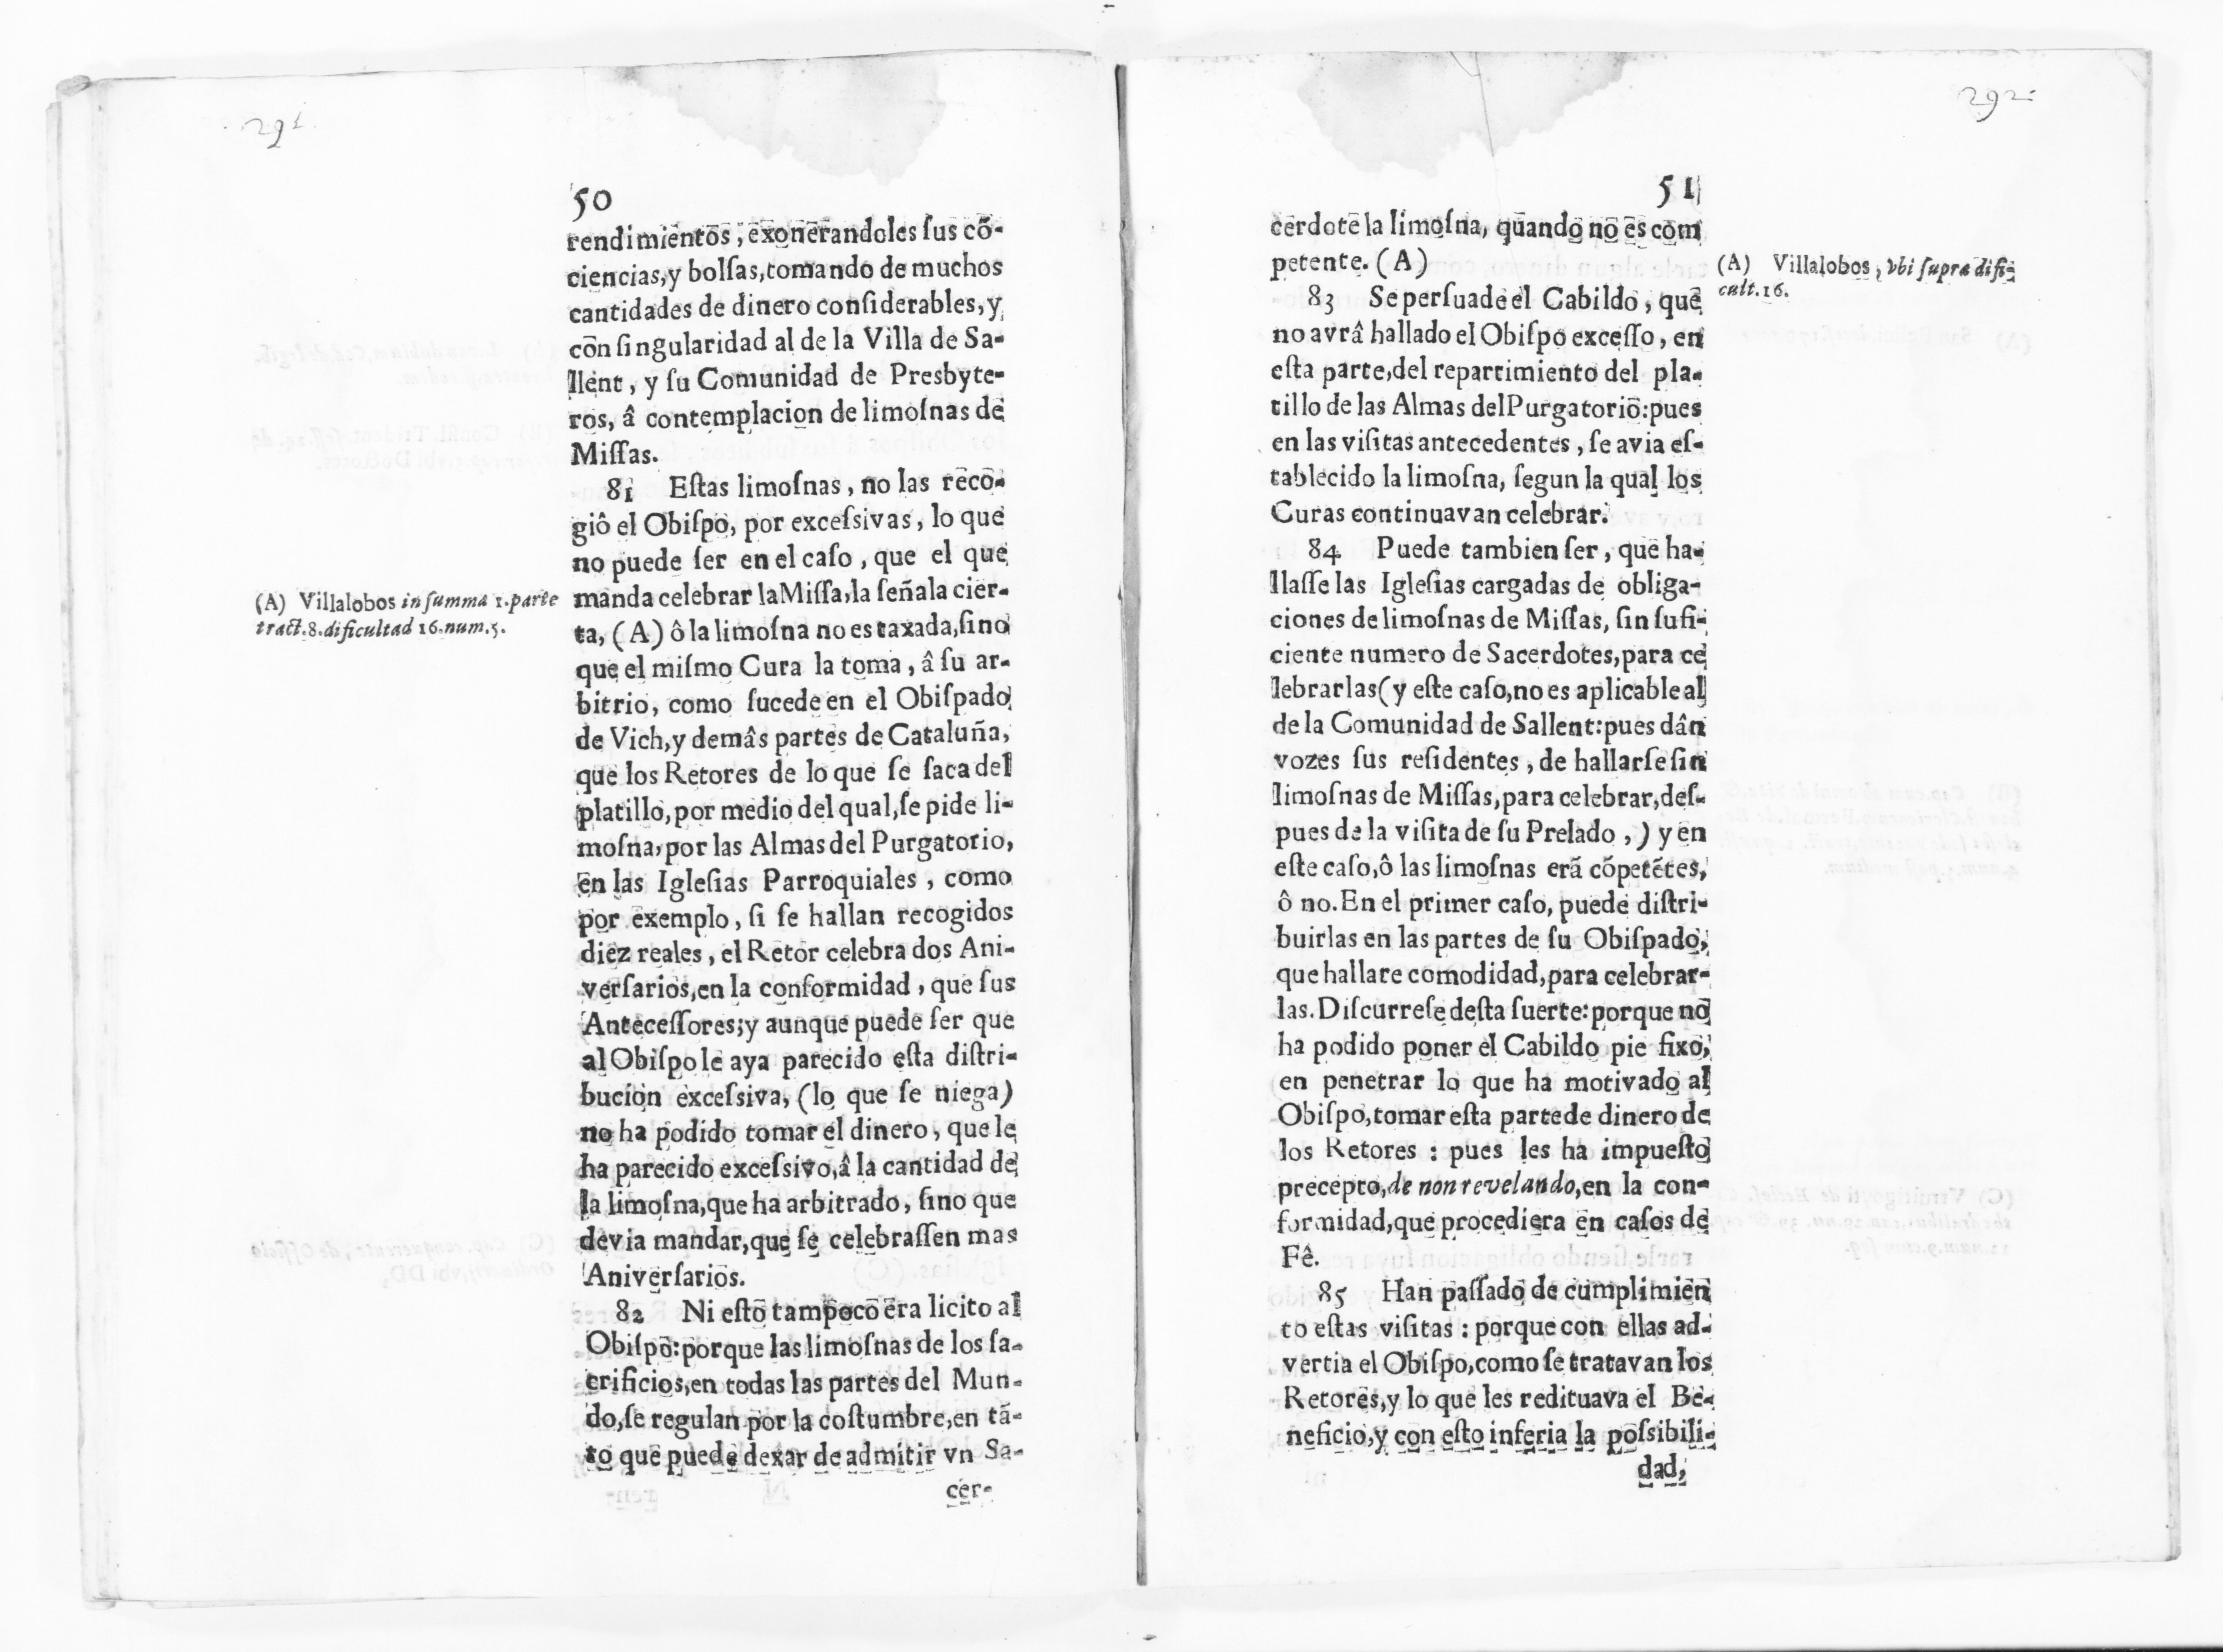 291
50
rendimientos, exonerandoles ſus cō-
ciencias, y bolſas, tomando de muchos
cantidades de dinero conſiderables, y
con ſingularidad al de la Villa de Sa-
llent, y ſu Comunidad de Presbyte-
ros, â contemplacion de limoſnas de
Miſſas.
81 Eſtas limoſnas, no las reco-
giô el Obiſpo, por exceſsivas, lo que
no puede ſer en el caſo, que el que
manda celebrar la Miſſa, la ſeñala cier-
ta, (A) ô la limoſna no es taxada, ſino
que el miſmo Cura la toma, â ſu ar-
bitrio, como ſucede en el Obiſpado
de Vich, y demâs partes de Cataluña,
que los Retores de lo que ſe ſaca del
platillo, por medio del qual, ſe pide li-
moſna, por las Almas del Purgatorio,
en las Igleſias Parroquiales, como
por exemplo, ſi ſe hallan recogidos
diez reales, el Retor celebra dos Ani-
verſarios, en la conformidad, que ſus
Anteceſſores; y aunque puede ſer que
al Obiſpo le aya parecido eſta diſtri-
bucion exceſsiva, (lo que ſe niega)
no ha podido tomar el dinero, que le
ha parecido exceſsivo, â la cantidad de
la limoſna, que ha arbitrado, ſino que
devia mandar, que ſe celebraſſen mas
Aniverſarios.
82 Ni eſto tampoco era licito al
Obiſpo: porque las limoſnas de los ſa-
crificios, en todas las partes del Mun-
do, ſe regulan por la coſtumbre, en tā-
to que puede dexar de admitir vn Sa-
cer-
(A) Villalobos in ſumma 1. parte
tract. 8. dificultad 16. num. 5.
292
51
cerdote la limoſna, quando no es com
petente. (A)
83 Se perſuade el Cabildo, que
no avrâ hallado el Obiſpo exceſſo, en
eſta parte, del repartimiento del pla-
tillo de las Almas del Purgatorio: pues
en las viſitas antecedentes, ſe avia eſ-
tablecido la limoſna, ſegun la qual los
Curas continuavan celebrar.
84 Puede tambien ſer, que ha-
llaſſe las Igleſias cargadas de obliga-
ciones de limoſnas de Miſſas, ſin ſufi-
ciente numero de Sacerdotes, para ce
lebrarlas (y eſte caſo, no es aplicable al
de la Comunidad de Sallent: pues dân
vozes ſus reſidentes, de hallarſe ſin
limoſnas de Miſſas, para celebrar, deſ-
pues de la viſita de ſu Prelado,) y en
eſte caſo, ô las limoſnas erā cōpetētes,
ô no. En el primer caſo, puede diſtri-
buirlas en las partes de ſu Obiſpado,
que hallare comodidad, para celebrar-
las. Diſcurreſe deſta ſuerte: porque no
ha podido poner el Cabildo pie fixo,
en penetrar lo que ha motivado al
Obiſpo, tomar eſta parte de dinero de
los Retores: pues les ha impueſto
precepto, de non revelando, en la con-
formidad, que procediera en caſos de
Fê.
85 Han paſſado de cumplimien
to eſtas viſitas: porque con ellas ad-
vertia el Obiſpo, como ſe tratavan los
Retores, y lo que les redituava el Be-
neficio, y con eſto inferia la poſsibili-
dad,
(A) Villalobos, vbi ſupra difi-
cult. 16.